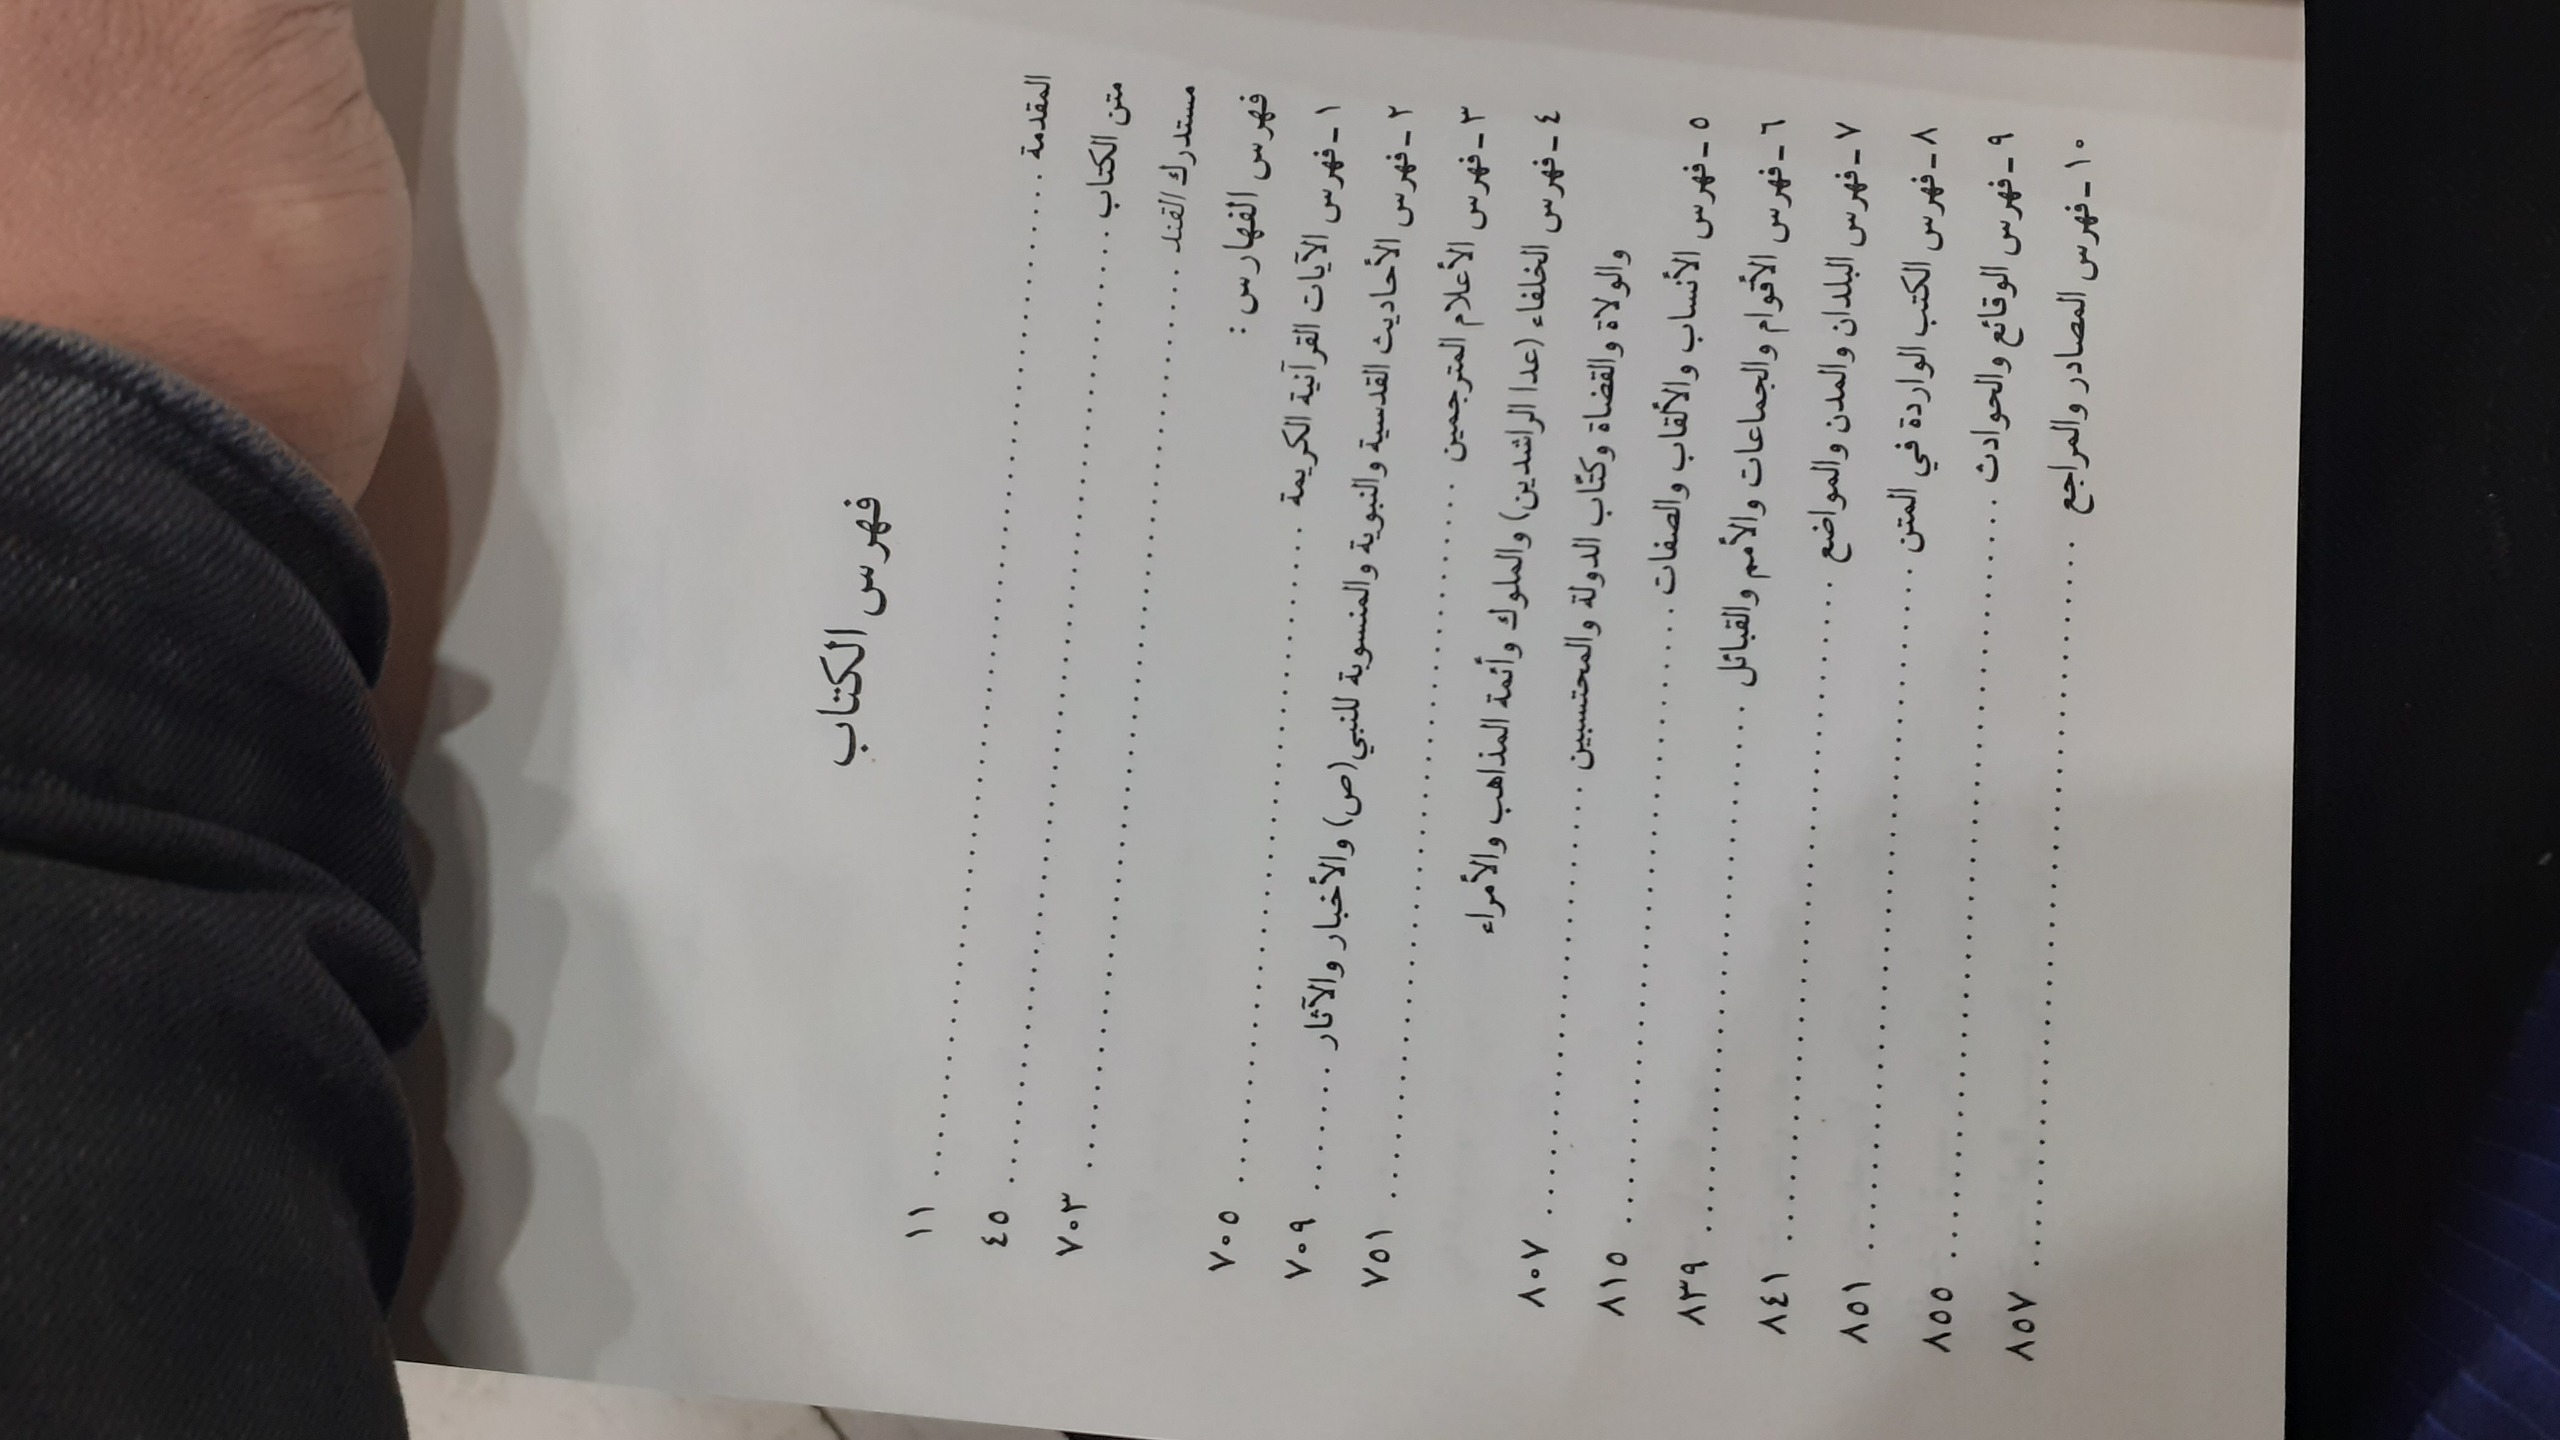 فهرس الكتاب
المقدمة ........ ١١
متن الكتاب ........ ٤٥
مستدرك القند ........ ٧٠٣
فهرس الفهارس :
١ - فهرس الآيات القرآنية الكريمة ........ ٧٠٥
٢ - فهرس الأحاديث القدسية والنبوية والمنسوبة للنبي (ص) والأخبار والآثار ........ ٧٠٩
٣ - فهرس الأعلام المترجمين ........ ٧٥١
٤ - فهرس الخلفاء (عدا الراشدين) والملوك وأئمة المذاهب والأمراء
والولاة والقضاة وكتّاب الدولة والمحتسبين ........ ٨٠٧
٥ - فهرس الأنساب والألقاب والصفات ........ ٨١٥
٦ - فهرس الأقوام والجماعات والأمم والقبائل ........ ٨٣٩
٧ - فهرس البلدان والمدن والمواضع ........ ٨٤١
٨ - فهرس الكتب الواردة في المتن ........ ٨٥١
٩ - فهرس الوقائع والحوادث ........ ٨٥٥
١٠ - فهرس المصادر والمراجع ........ ٨٥٧